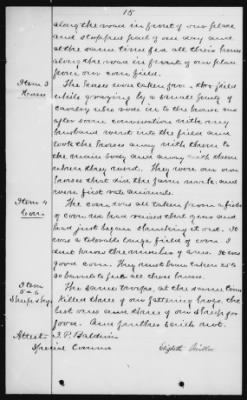 15
along the road in front of our place
and stopped part of one day and
at the same time fed all their horses
along the road in front of our place
from our corn field.
Item 3 The horse was taken from the field
Horses while grazing by a small party of
cavalry who rode in to the house and
after some conversation with my
husband went into the field and
took the horses away with them to
the main body and away with them
when they went. They were our own
horses that did the farm work and
were first rate animals.
Item 4 The corn was all taken from a field
Corn of corn we had raised that year and
had just begun shucking it out. It
was a tolerable large field of corn I
dont know the number of acres. It was
good corn. They must have taken
barrels to feed all those horses.
Item The same troops, at the same time
5 & 6 killed three of our fattening hogs, the
Sheep & hogs best ones and three of our sheep for
food. And further saith not.
Attest: J. P. Baldwin
Special Comm Elizabeth